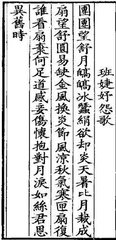 班婕妤怨歌
團團望舒月皜皜冰蠶絹欲却炎天暑比月裁成
扇望舒圓易缺金風換炎節風涼秋氣寒匣扇復
誰看扇棄何足道感妾傷懷抱對月淚如絲君恩
異舊時